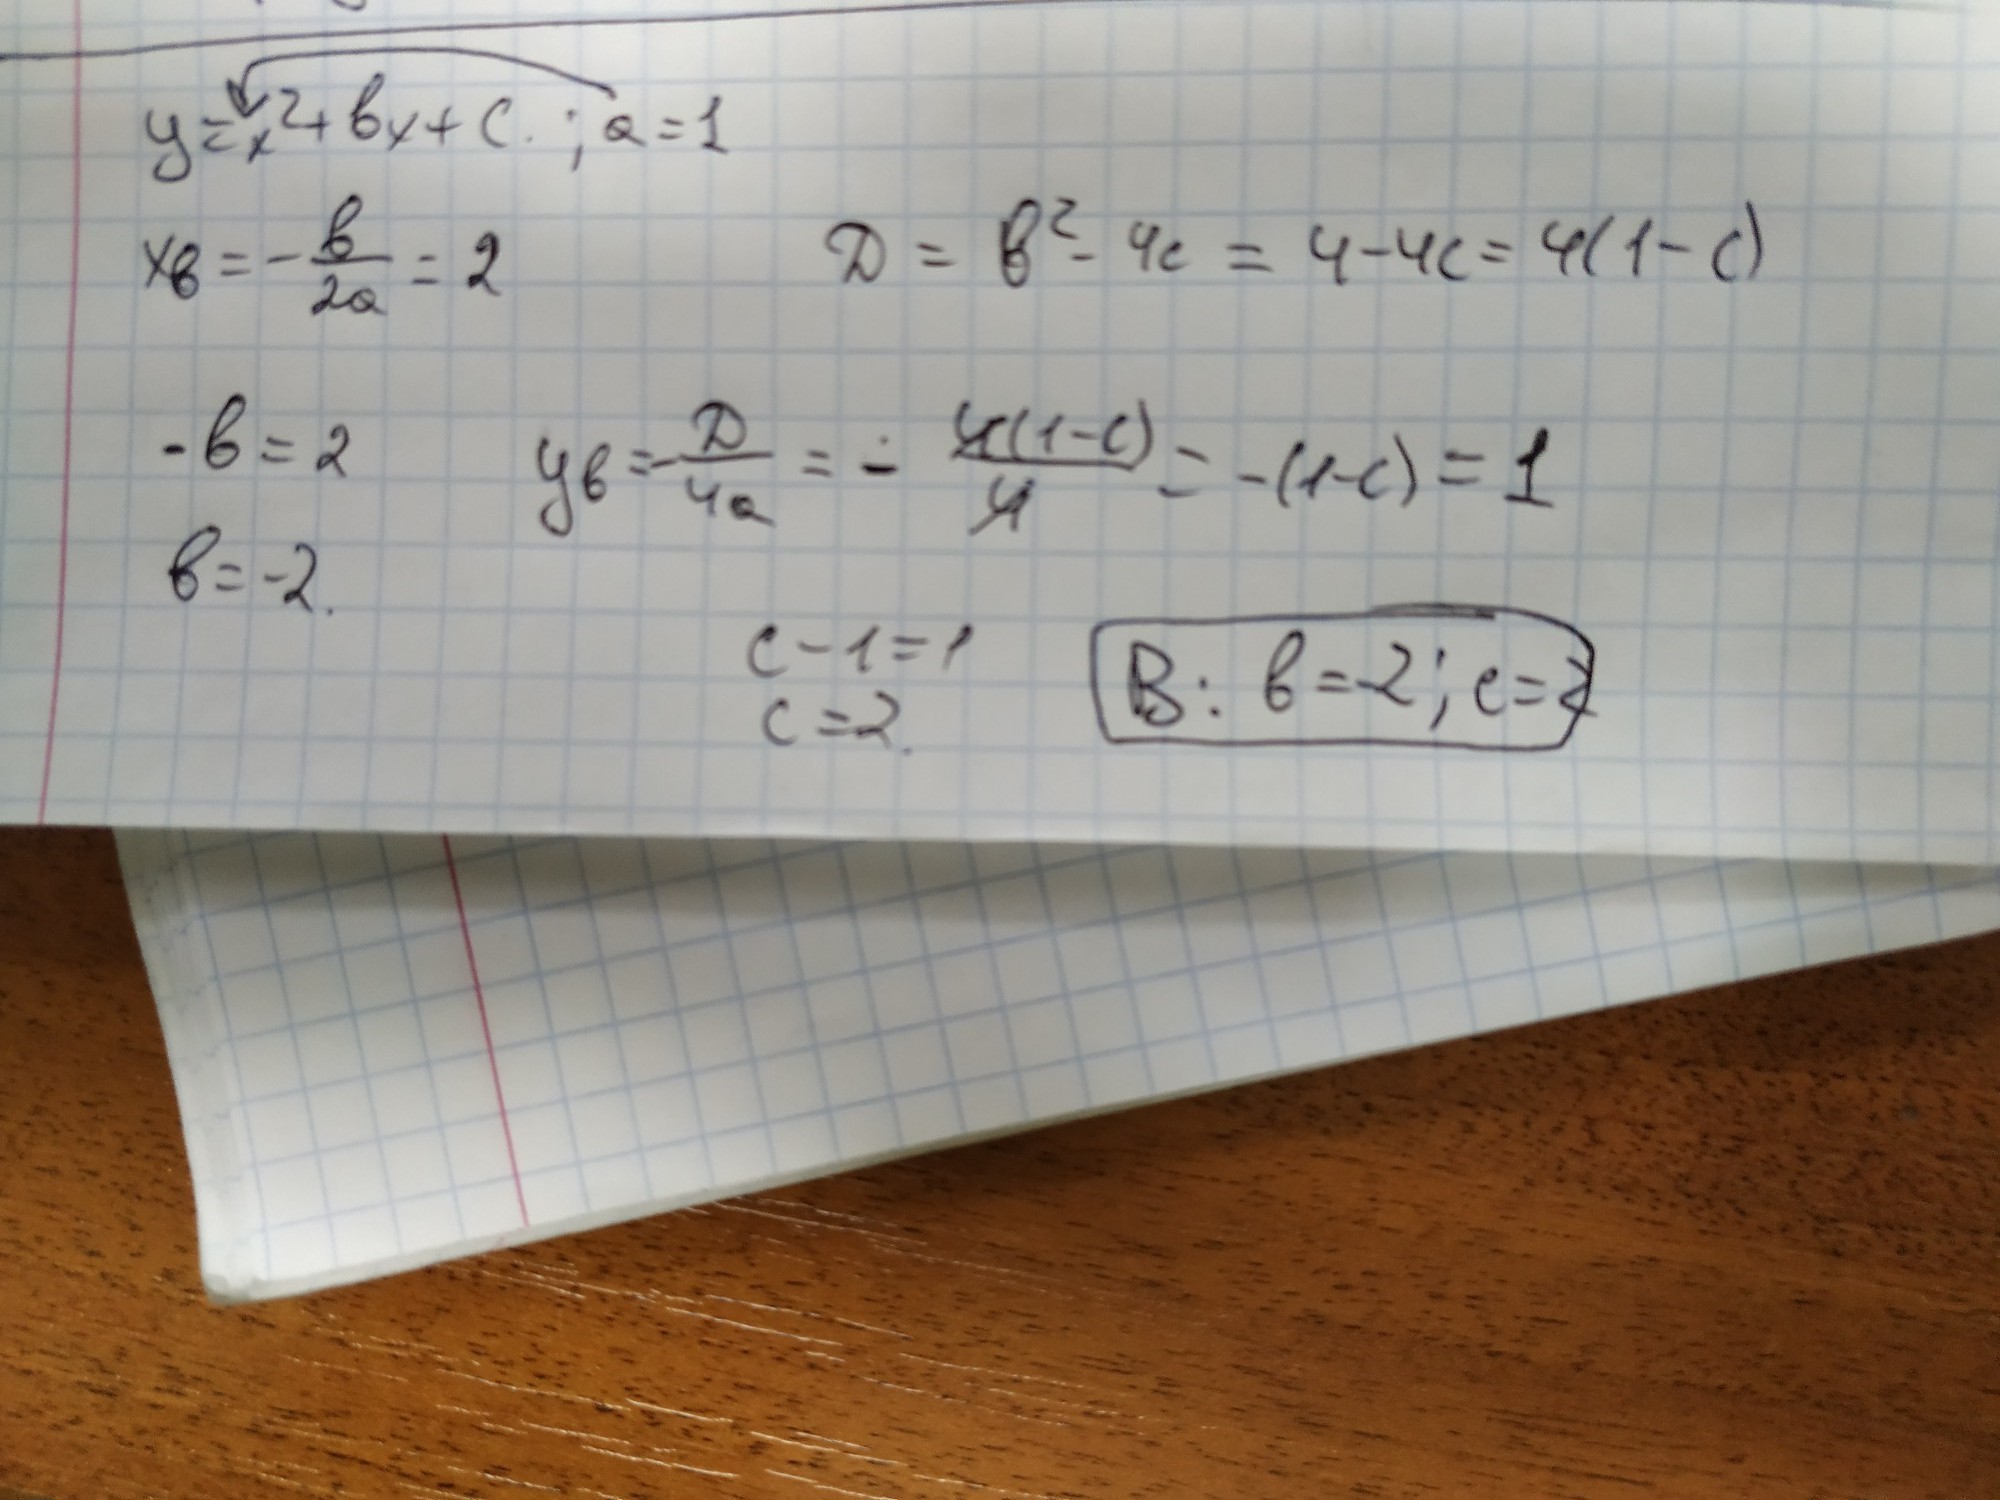 y=x²+вx+c. ; a=1
xв = -в/2a = 2
D = в² - 4c = 4-4c = 4(1-c)
-в = 2
yв = -D/4a = - 4(1-c)/4 = -(1-c) = 1
в = -2.
c-1=1
c=2.
В: в=-2; c=2